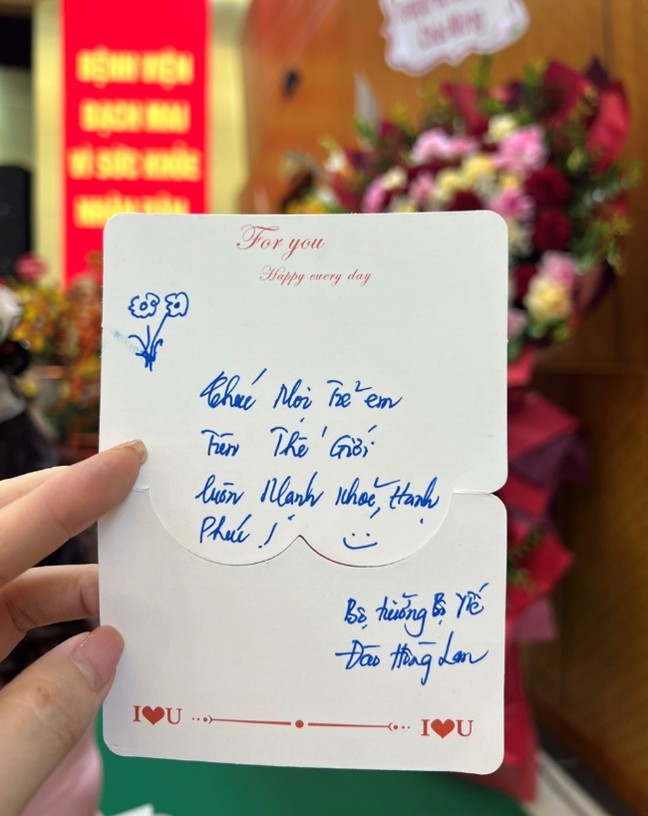 BỆNH VIỆN
BẠCH MAI
VÌ SỨC KHỎE
NHÂN DÂN
For you
Happy every day
Chúc Mọi Trẻ em
Trên Thế Giới
luôn Mạnh Khoẻ, Hạnh
Phúc! :)
Bộ trưởng Bộ Y tế
Đào Hồng Lan
I❤U
I❤U